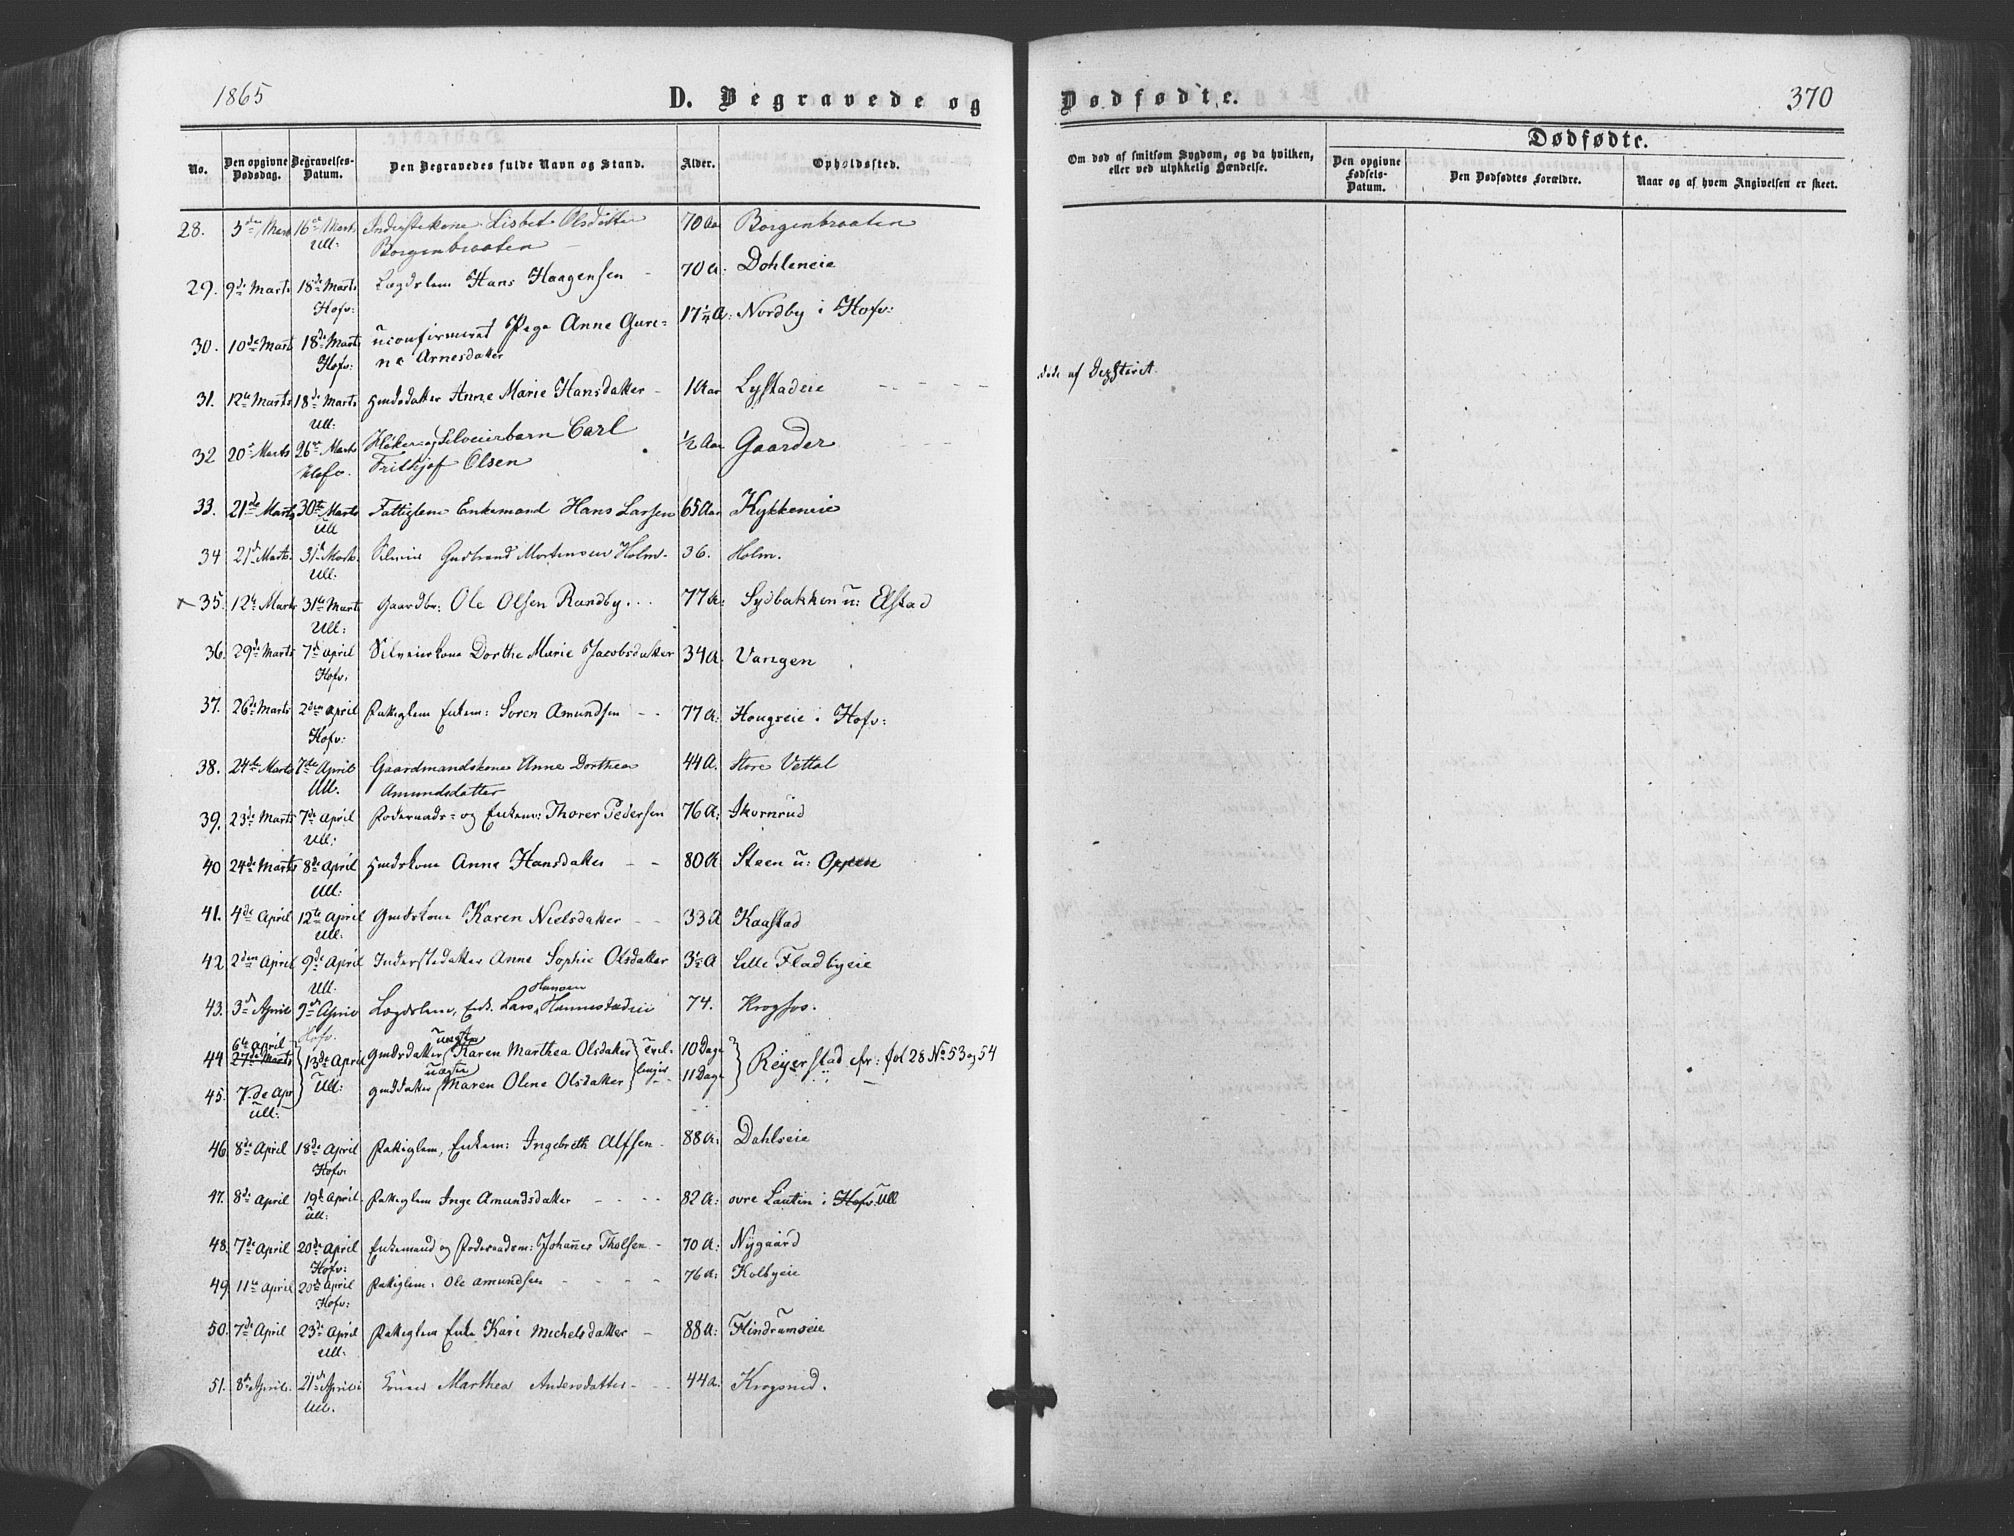 1865
D. Begravede og
Dødfødte.
370
Dødfødte.
No.
Den opgivne Dødsdag.
Begravelses-Datum.
Den Begravedes fulde Navn og Stand.
Alder.
Opholdssted.
Om død af smitsom Sygdom, og da hvilken, eller ved ulykkelig Hændelse.
Den opgivne Fødsels-Datum.
Den Dødfødtes Forældre.
Naar og af hvem Angivelsen er skeet.
28. 5 Marts 16 Marts Inderstekone Lisbet Olsdatter 70 Aar Borgenbraaten
Ull: Borgenbraaten
29. 9de Marts 18de Marts Lægdslem Hans Haagensen 70 A: Dohleneie
Hofv:
30. 10de Marts 18de Marts uconfirmeret Pige Anne Gure= 17½ A: Nordby i Hofv:
Hofv: ne Arnesdatter
31. 12te Marts 18de Marts Anne Marie Hansdatter 1 Aar Lystadeie døde af
Ull:
32 20 Marts 26 Marts Carl ½ Aar Gaarder
Hofv. Frithjof Olsen
33. 21de Marts 30te Marts Fattiglem Enkemand Hans Larsen 65 Aar Kykkeneie
Ull
34 21 Marts 31 Marts Gudbrand Mortensen Holm 36. Holm.
Ull:
35. 12te Marts 31te Marts Gaardbr: Ole Olsen Randby 77 A: Sydbakken u: Elstad
Ull:
36. 29de Marts 7de April Dorthe Marie Jacobsdatter 34 A. Vangen
Hofv.
37. 26de Marts 2den April Fattiglem Enkem: Soren Amundsen 77 A: Hougseie i Hofv:
Hofv:
38. 24de Marts 7de April Gaardmandskone Anne Dorthea 44 A. Store Vettal
Ull. Amundsdatter
39. 23de Marts 7de April Foderaads= og Enkem: Thorer Pedersen 76 A: Skornrud
Ull:
40 24de Marts 8de April Anne Hansdatter 80 A: Steen u: Oppen
Ull:
41. 4de April 12te April Karen Nielsdatter 33 A Kaastad
Ull:
42 2den April 9de April Inderstedatter Anne Sophie Olsdatter 3½ A Lille Fladbyeie
Ull: Hansen
43. 3de April 9de April Lægdslem, Enk. Lars 74. Krogfos.
Hofv.
6te April
44 27de Marts 13de April Karen Marthea Olsdatter 10 Dage Reyerstad cfr: fol 28 No 53 og 54
Ull:
45. 7de Apr Maren Oline Olsdatter 11 Dage
Ull:
46. 8de April 18de April Fattiglem, Enkem: Ingebreth Alfsen 88 A: Dahlseie
Hofv
47. 8de April 19de April Fattiglem Inge Amundsdatter 82 A: ovre Lautin i Hofv. Ull
Ull:
48. 7de April 20de April Enkemand og Foderaadsm: Johannes Tholsen 70 A: Nygaard
Hofv:
49. 11te April 20de April Fattiglem: Ole Amundsen 76 A: Kolbyeie
Hofv:
50. 7de April 23de April Fattiglem Enke Kari Michelsdatter 88 A: Flindrumseie
Ull:
51. 8de April. 21de April Marthea Andersdatter 44 A. Krogsrud.
Ull.